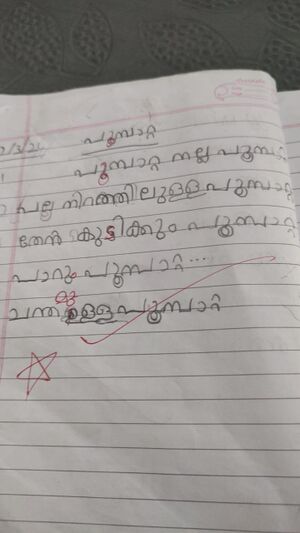 2/3/2
പൂമ്പാറ്റ
പൂമ്പാറ്റ നല്ല പൂമ്പാ
പല നിറത്തിലുള്ള പൂമ്പാറ്റ
തേൻ കുടിക്കും പൂമ്പാറ്റ
പാറും പൂമ്പാറ്റ...
ചന്തമുള്ള പൂമ്പാറ്റ